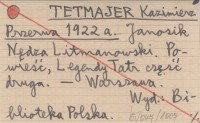 TETMAJER Kazimierz
Przerwa 1922 a. Janosik
Nędza Litmanowski. Po-
wieść, Legendy Tatr część
druga. — Warszawa.
Wyd.: Bi-
blioteka Polska.